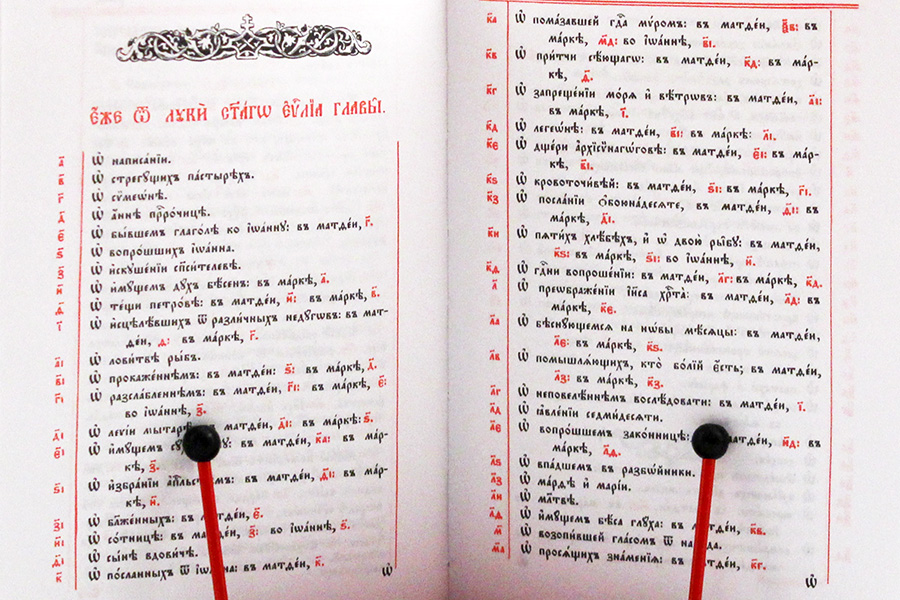 є҆́же ѿ лꙋкѝ ст҃а́гѡ є҆ѵⷢ҇лїа главы̑.
а҃ Ѡ҆ написа́нїи.
в҃ Ѡ҆ стрегꙋ́щихъ па́стырѣхъ.
г҃ Ѡ҆ сѷмеѡ́нѣ.
д҃ Ѡ҆ а҆́ннѣ прⷪ҇ро́чицѣ.
є҃ Ѡ҆ бы́вшемъ глаго́лѣ ко і҆ѡа́ннꙋ: въ матѳе́и, г҃.
ѕ҃ Ѡ҆ вопро́шшихъ і҆ѡа́нна.
з҃ Ѡ҆ и҆скꙋше́нїи сп҃си́телевѣ.
и҃ Ѡ҆ и҆мꙋ́щемъ дꙋ́хъ бѣ́сенъ: въ ма́ркѣ, а҃.
ѳ҃ Ѡ҆ те́щи петро́вѣ: въ матѳе́и, и҃: въ ма́ркѣ, в҃.
і҃ Ѡ҆ и҆сцѣлѣ́вшихъ ѿ разли́чныхъ недꙋ́гѡвъ: въ мат-
ѳе́и, ѳ: въ ма́ркѣ, г҃.
а҃і Ѡ҆ лови́твѣ ры́бъ.
в҃і Ѡ҆ прокаже́ннѣмъ: въ матѳе́и: ѕ҃: въ ма́ркѣ, д҃.
г҃і Ѡ҆ разсла́бленнѣмъ: въ матѳе́и, г҃і: въ ма́ркѣ, є҃:
во і҆ѡа́ннѣ, з҃.
д҃і Ѡ҆ леѵі́и мытарѣ̀: въ матѳе́и, д҃і: въ ма́ркѣ: ѕ҃.
є҃і Ѡ҆ и҆мꙋ́щемъ въ матѳе́и, к҃а: въ ма́р-
кѣ, з҃.
ѕ҃і Ѡ҆ и҆збра́нїи въ матѳе́и, ѳ҃і: въ ма́р-
кѣ, и҃.
з҃і Ѡ҆ блаже́нныхъ: въ матѳе́и, є҃.
и҃і Ѡ҆ со́тницѣ: въ матѳе́и, з҃: во і҆ѡа́ннѣ, ѕ҃.
ѳ҃і Ѡ҆ сы́нѣ вдови́чѣ.
к҃ Ѡ҆ по́сланныхъ ѿ въ матѳе́и, к҃.
Ѡ҆
к҃а Ѡ҆ пома́завшей гдⷭ҇а мѵ́ромъ: въ матѳе́и, въ
ма́ркѣ, м҃д: во і҆ѡа́ннѣ, в҃і.
к҃в Ѡ҆ при́тчи сѣ́ющагѡ: въ матѳе́и, к҃д: въ ма́р-
кѣ, ѳ҃.
к҃г Ѡ҆ запреще́нїи мо́рѧ и҆ вѣ́трѡвъ: въ матѳе́и, а҃і:
въ ма́ркѣ, і҃.
к҃д Ѡ҆ легеѡ́нѣ: въ матѳе́и, в҃і: въ ма́ркѣ: а҃і.
к҃є Ѡ҆ дще́ри а҆рхїсѷнагѡ́говѣ: въ матѳе́и, є҃і: въ ма́р-
кѣ, в҃і.
к҃ѕ Ѡ҆ кровоточи́вѣй: въ матѳе́и, ѕ҃і: въ ма́ркѣ, г҃і.
к҃з Ѡ҆ посла́нїи ѻ҆боюна́десѧте, въ матѳе́и, ѳ҃і: въ
ма́ркѣ, д҃і.
к҃и Ѡ҆ пѧти́хъ хлѣ́бѣхъ, и҆ ѡ҆ двою̀ ры̑бꙋ: въ матѳе́и,
к҃ѕ: въ ма́ркѣ, ѕ҃і: во і҆ѡа́ннѣ, и҃.
к҃ѳ Ѡ҆ гдⷭ҇ни вопроше́нїи: въ матѳе́и, л҃г: въ ма́ркѣ, к҃д.
л҃ Ѡ҆ преѡбраже́нїи і҆и҃са хрⷭ҇та̀: въ матѳе́и, л҃д: въ
ма́ркѣ, к҃є.
л҃а Ѡ҆ бѣснꙋ́ющемсѧ на нѡ́вы мⷭ҇цы: въ матѳе́и,
л҃є: въ ма́ркѣ, к҃ѕ.
л҃в Ѡ҆ помышлѧ́ющихъ, кто̀ бо́лїй є҆́сть: въ матѳе́и,
л҃з: въ ма́ркѣ, к҃з.
л҃г Ѡ҆ неповелѣ́ннѣмъ вослѣ́довати: въ матѳе́и, і҃.
л҃д Ѡ҆ ꙗ҆вле́нїи седми́десѧти.
л҃є Ѡ҆ вопро́шшемъ зако́нницѣ: матѳе́и, н҃д: въ
ма́ркѣ, л҃ѳ.
л҃ѕ Ѡ҆ впа́дшемъ въ разбѡ́йники.
л҃з Ѡ҆ ма́рѳѣ и҆ марі́и.
л҃и Ѡ҆ мл҃твѣ.
л҃ѳ Ѡ҆ и҆мꙋ́щемъ бѣ́са глꙋ́ха: въ матѳе́и, к҃в.
м҃ Ѡ҆ возопи́вшей гла́сомъ ѿ наро́да.
м҃а Ѡ҆ просѧ́щихъ зна́менїѧ: въ матѳе́и, к҃г.
Ѡ҆